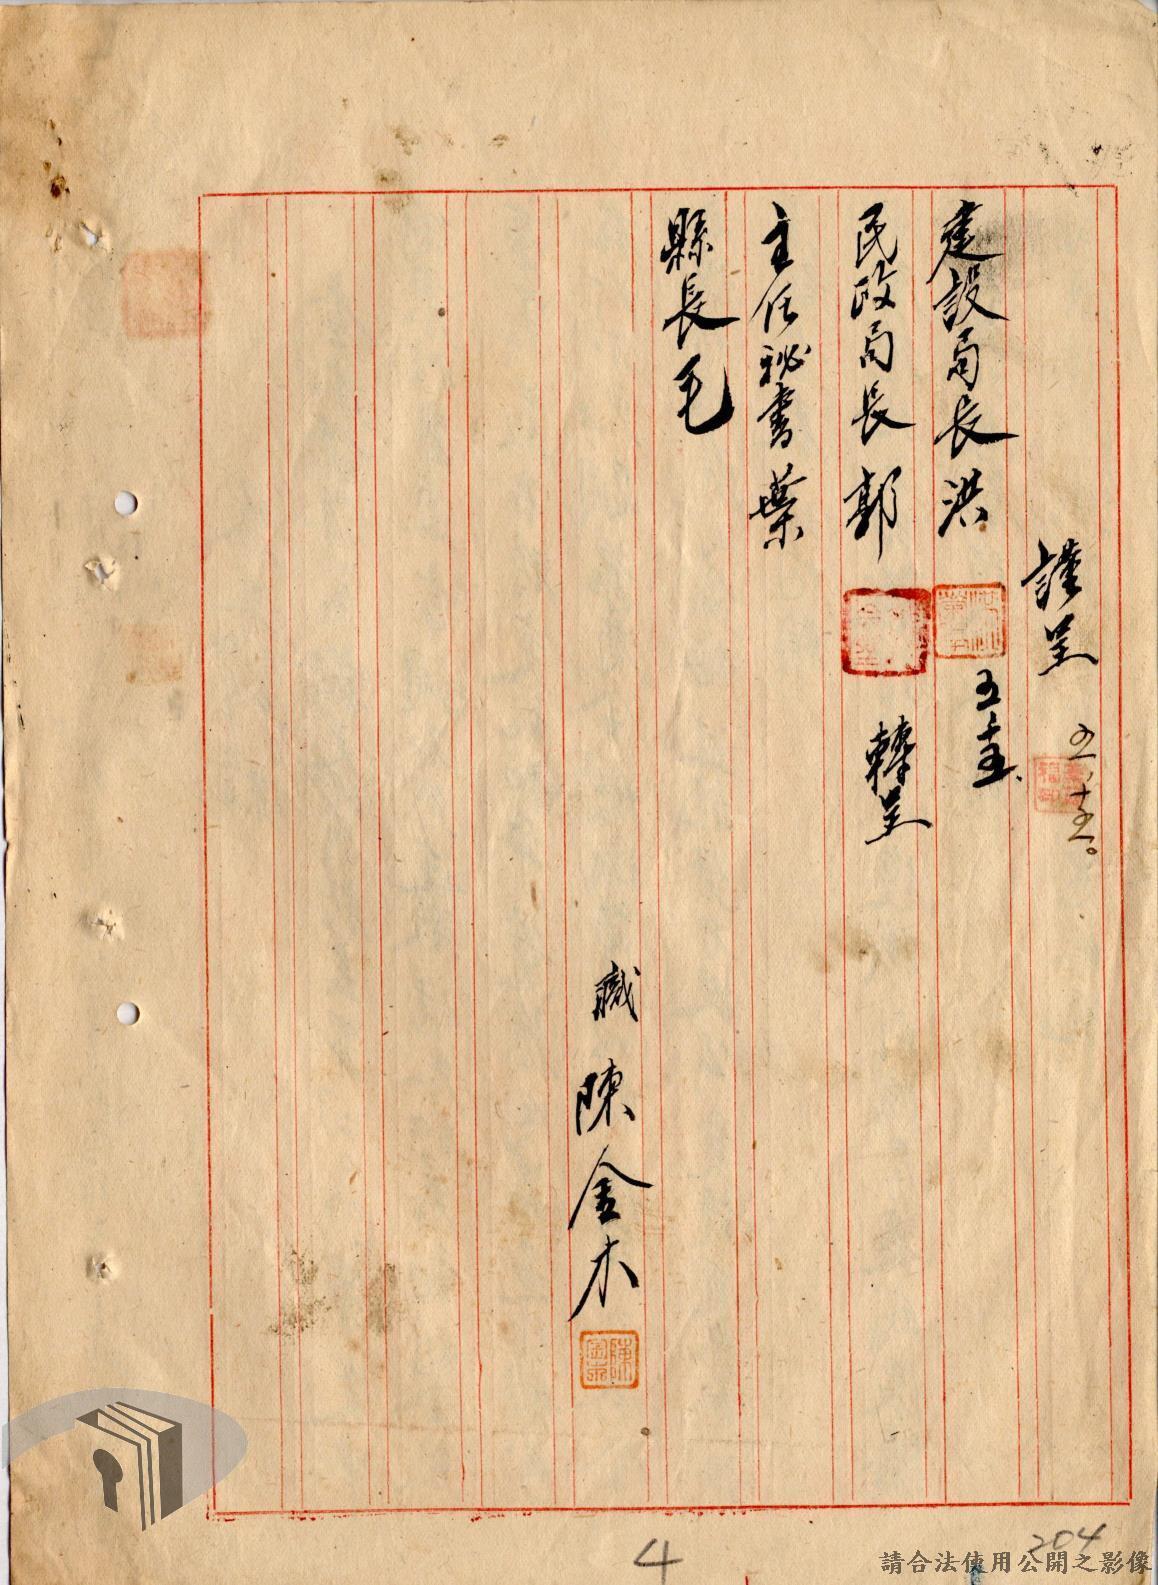 謹呈
五、十五。
建設局長洪
五、十五、
民政局長郭
轉呈
主任秘書葉
縣長毛
職 陳金木
陳金木
4
204
請合法使用公開之影像